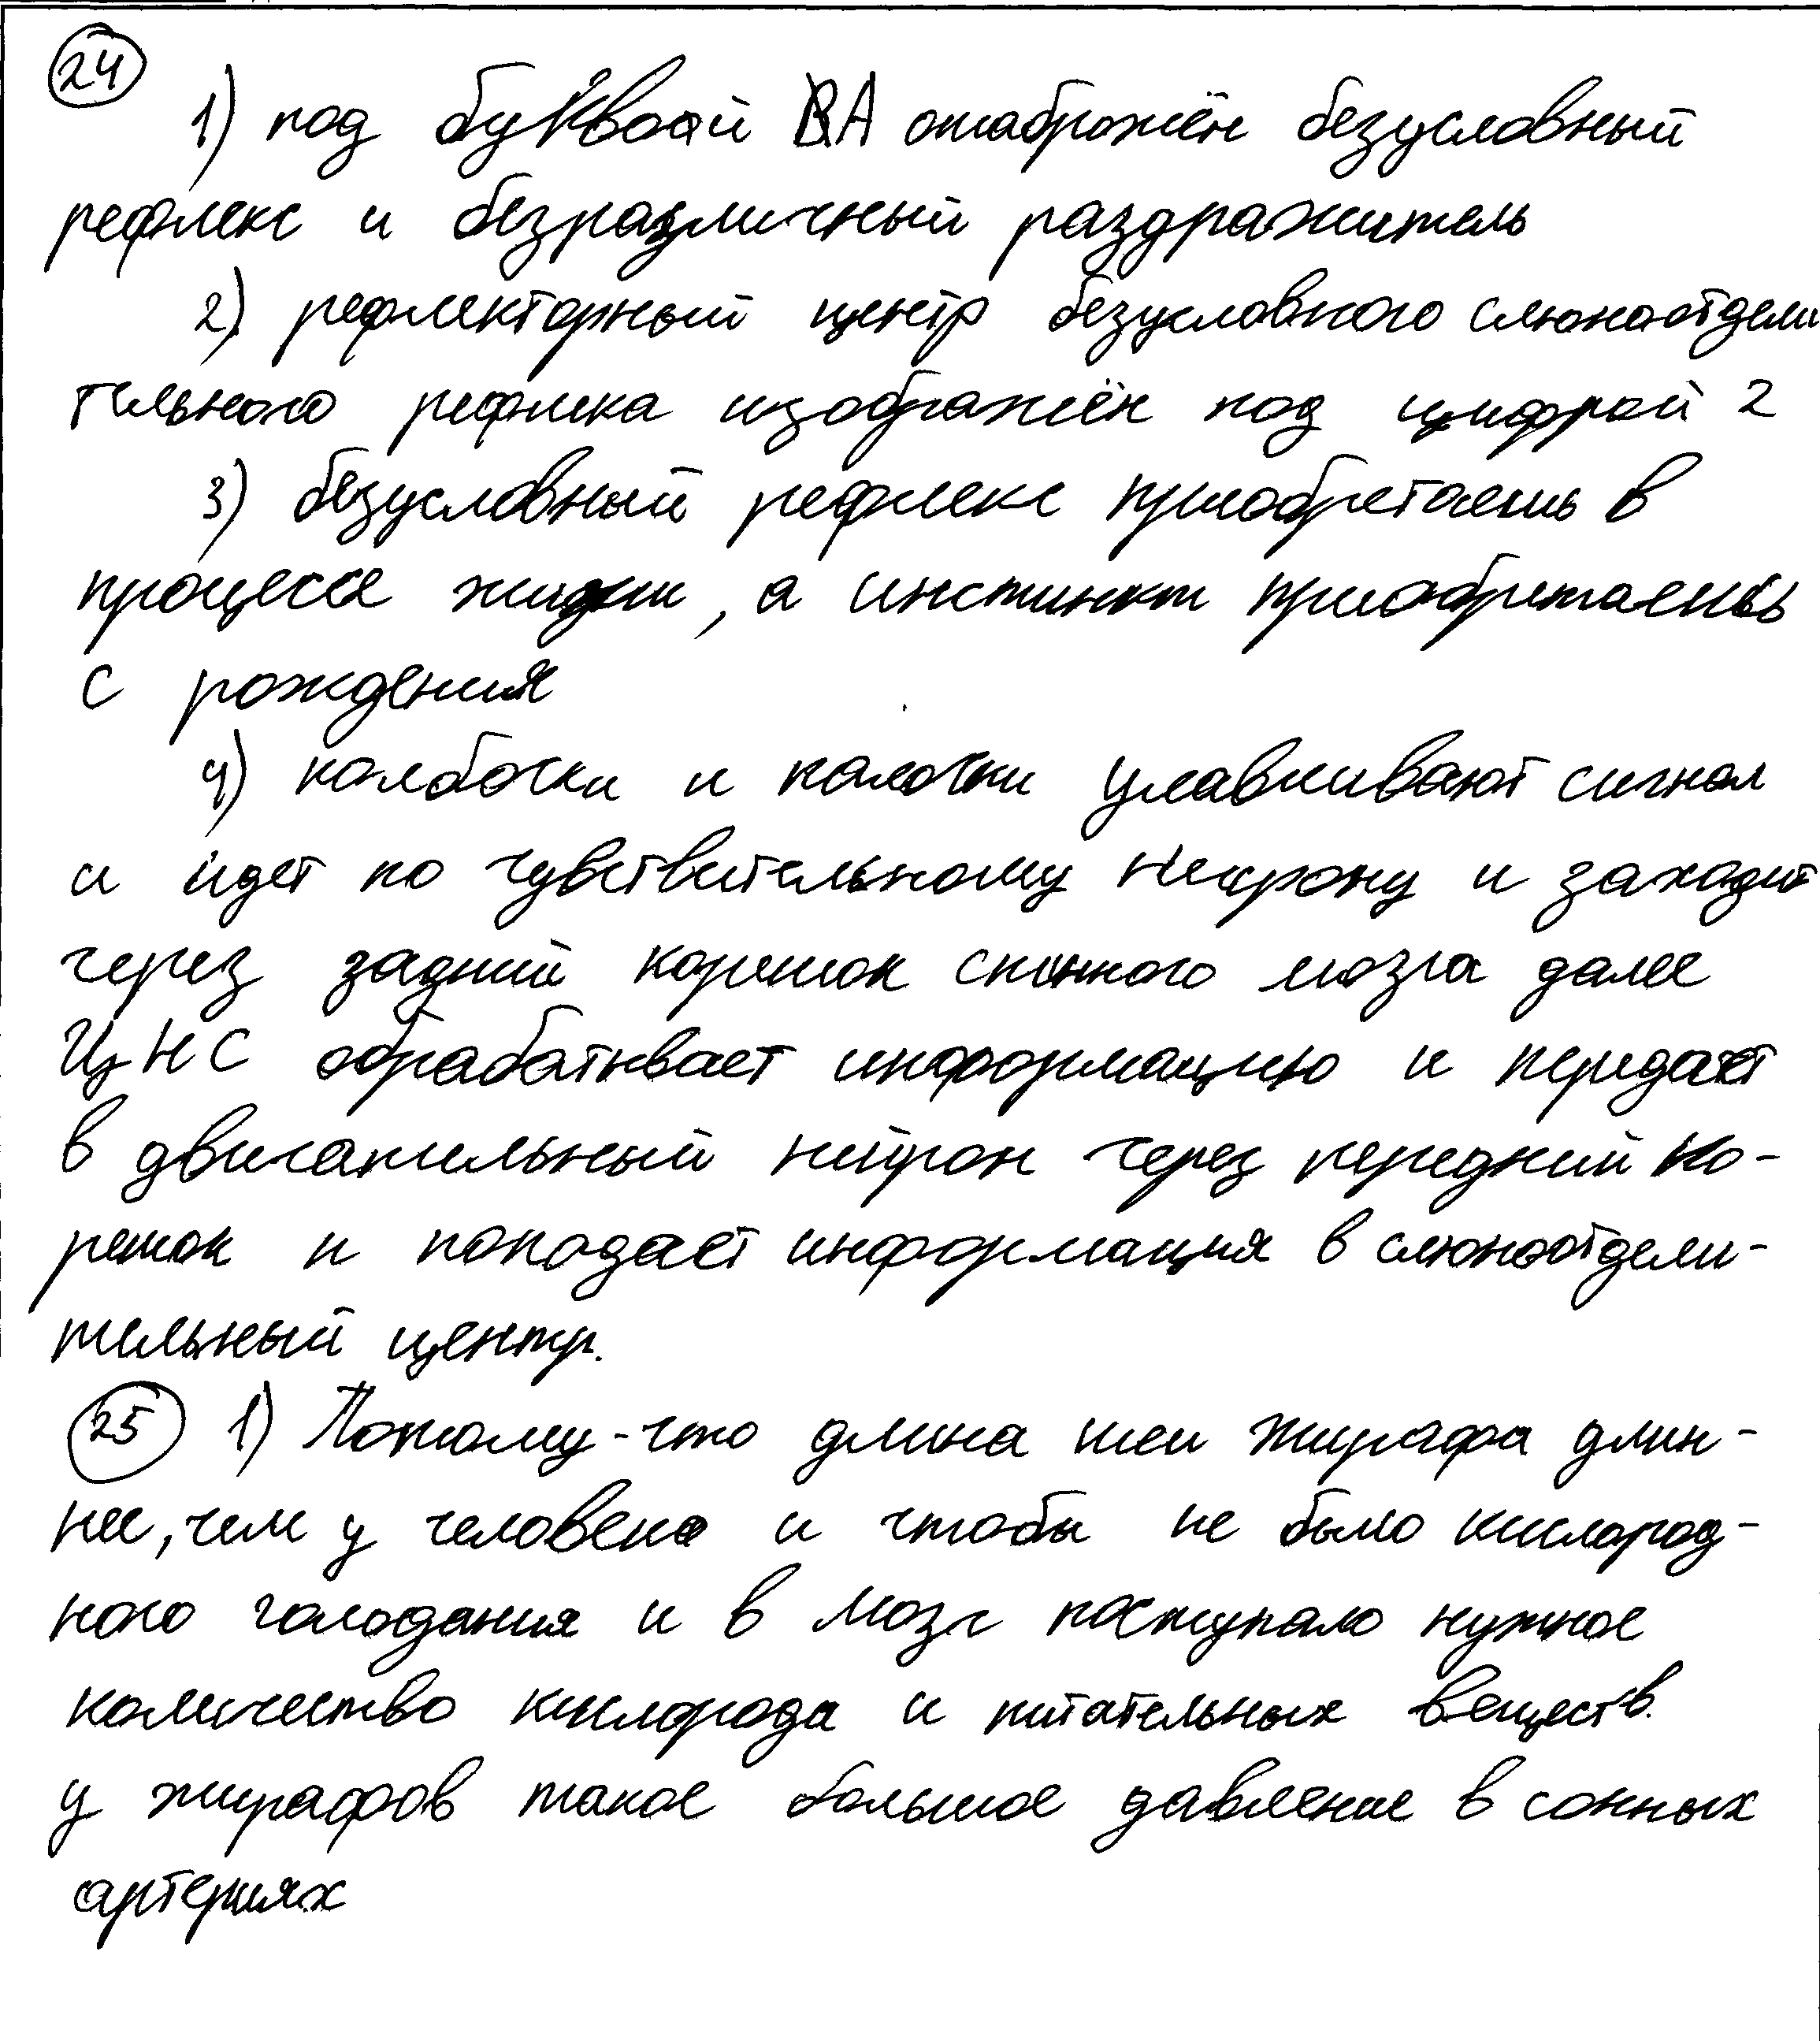 24
1) под буквой А отаброжён безусловный
рефлекс и безразличный раздражитель
2) рефлекторный центр безусловного слюноотдели
тельного рефлека изображён под цифрой 2
3) безусловный рефлекс приобретаешь в
процессе жизни, а инстинкт приобретаешь
с рождения
4) колбочки и палочки улавливают сигнал
и идет по чувствительному нейрону и заходит
через задний корешок спинного мозга далее
ЦНС обрабатывает информацию и передаёт
в двигательный нейрон через передний ко-
решок и попадает информация в слюноотдели-
тельный центр.
25 1) Потому-что длина шеи жирафа длин-
нее, чем у человека и чтобы не было кислород-
ного голодания и в мозг поступало нужное
количество кислорода и питательных веществ.
у жирафов такое большое давление в сонных
артериях